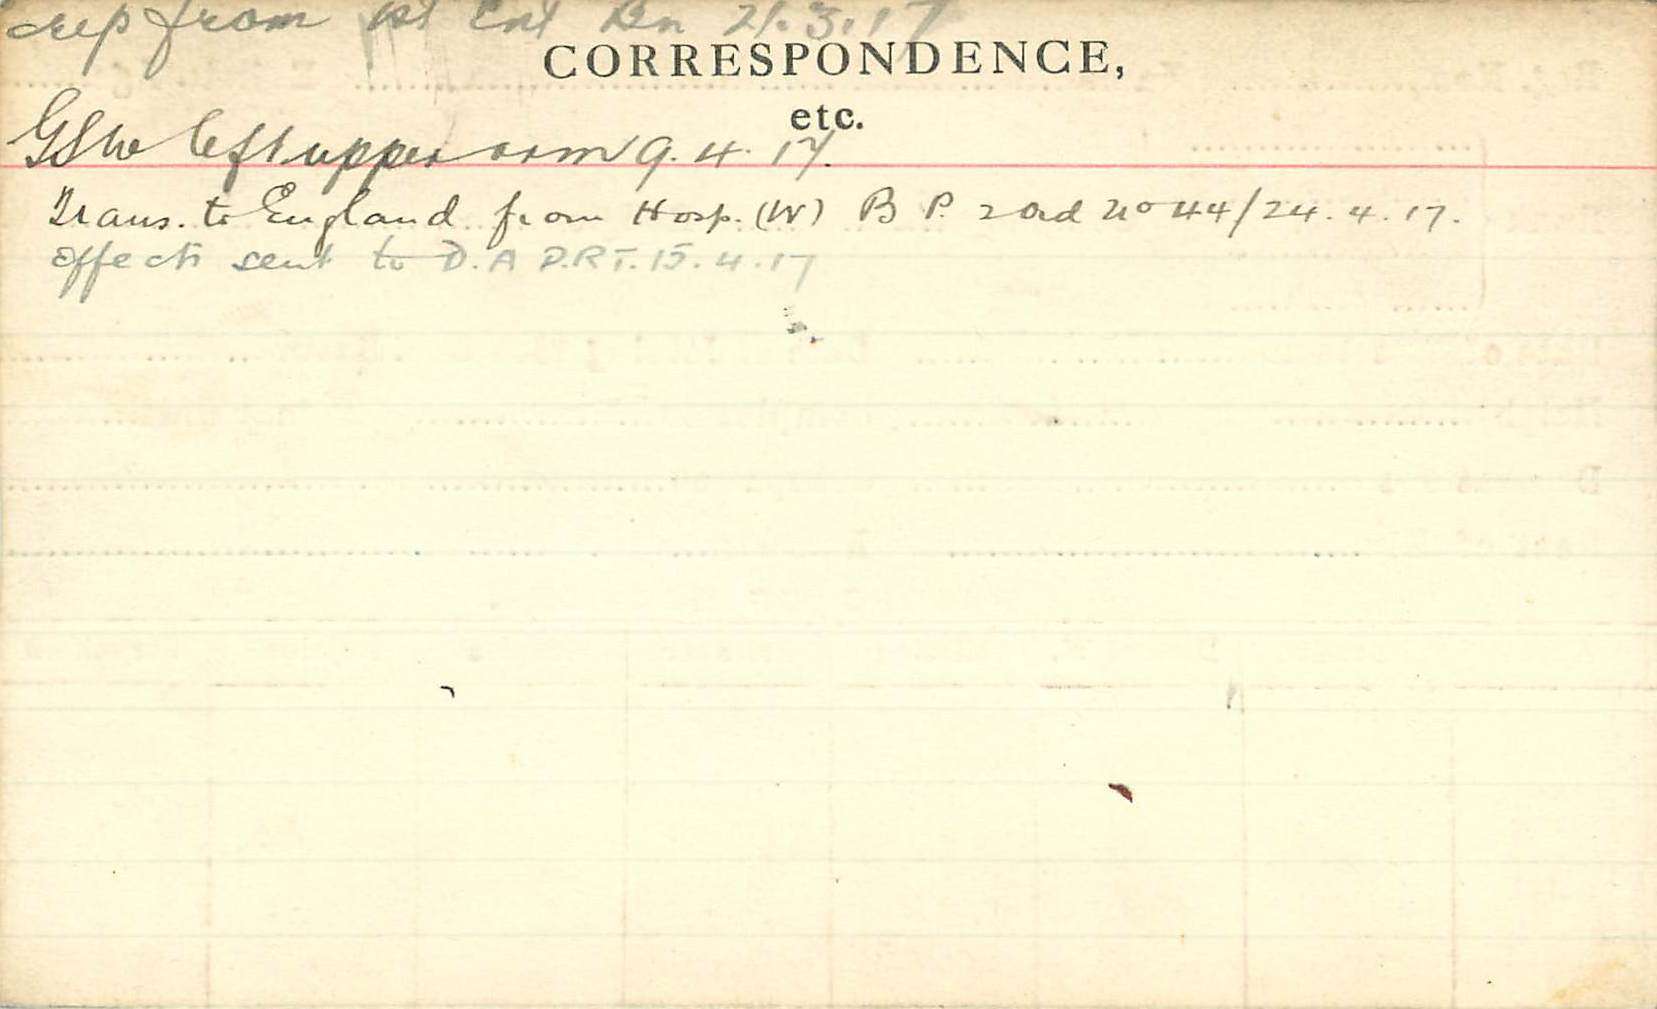 rep from 1st Ent Bn 21.3.17
CORRESPONDENCE,
etc.
GSW left upper arm 9.4.17.
Trans. to England from Hosp. (W) B P. 2 Ord No 44/24.4.17.
Effects sent to D.A D.R T. 15.4.17